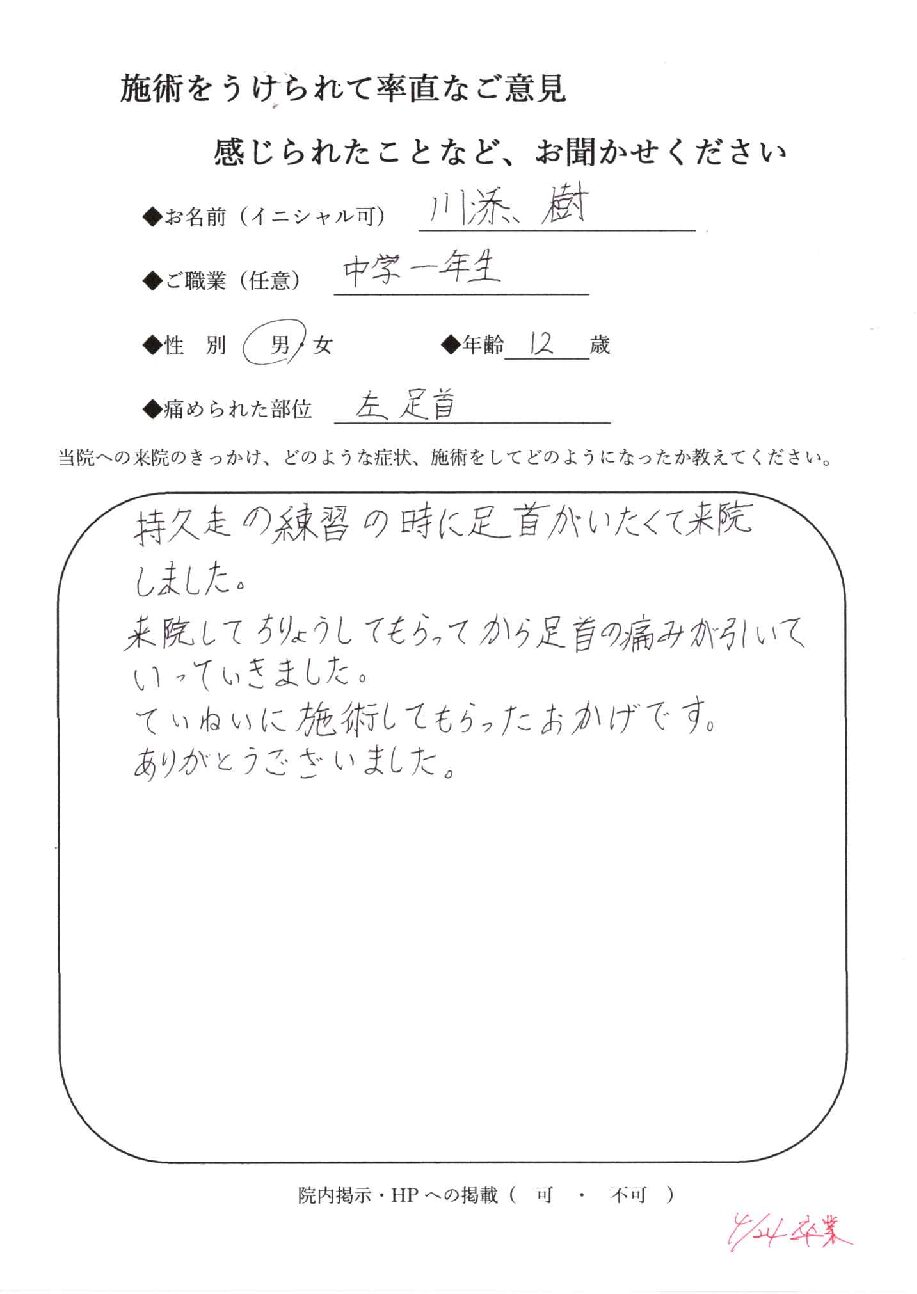 施術をうけられて率直なご意見
感じられたことなど、お聞かせください
◆お名前（イニシャル可） 川添 樹
◆ご職業（任意） 中学一年生
◆性 別 男・女 ◆年齢 12 歳
◆痛められた部位 左足首
当院への来院のきっかけ、どのような症状、施術をしてどのようになったか教えてください。
持久走の練習の時に足首がいたくて来院
しました。
来院してちりょうしてもらってから足首の痛みが引いて
いっていきました。
ていねいに施術してもらったおかげです。
ありがとうございました。
院内掲示・HPへの掲載（ 可 ・ 不可 ）
4/24 卒業